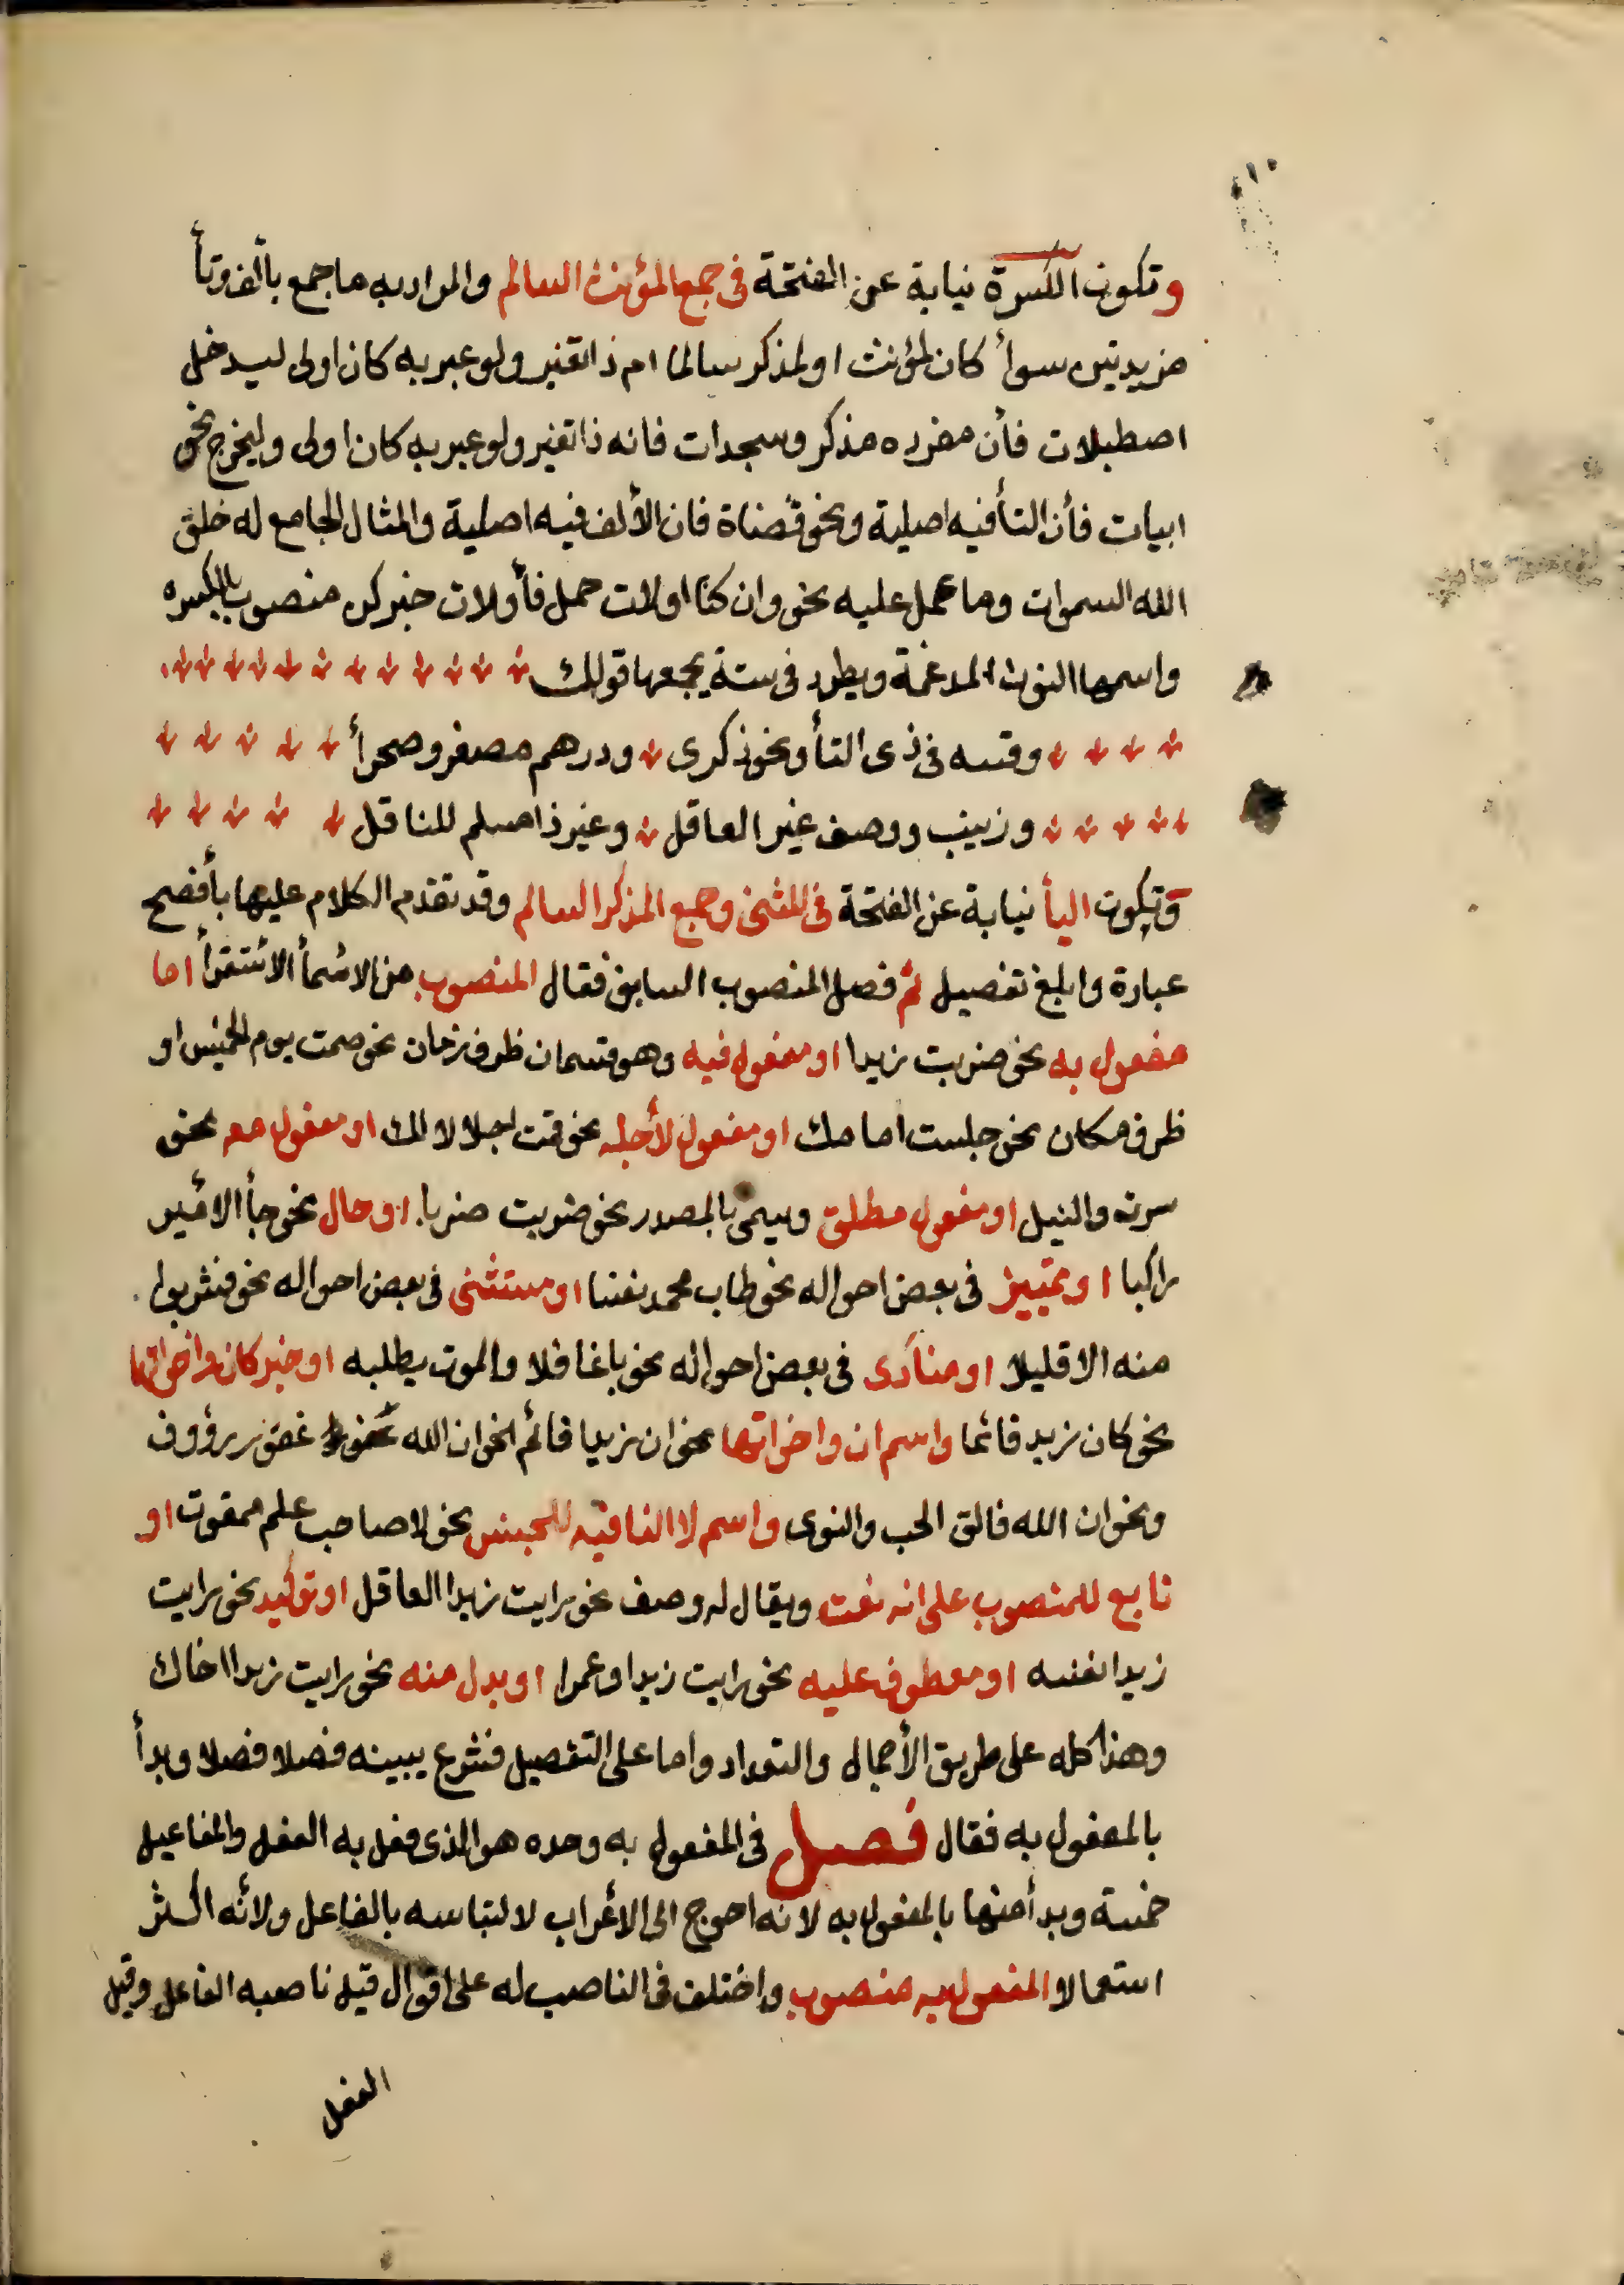 وتكون الكسرة نيابة عن الفتحة في جمع المؤنث السالم والمراد به ما جمع بألف وتأ
مزيدتين سوأ كان لمؤنث او لمذكر سالما ام ذا تغير ولو عبر به كان اولى ليدخل
اصطبلات فأن مفرده مذكر وسجدات فانه ذا تغير ولو عبر به كان اولى وليخرج نحو
ابيات فأن التأ فيه اصلية ونحو قضاة فان الألف فيه اصلية والمثال الجامع له خلق
الله السموات وما حمل عليه نحو وان كنّ اولات حمل فأولات خبر كن منصوب بالكسره
واسمها النون المدغمة ويطرد في ستة يجمعها قولك
وقسه في ذى التأ ونحو ذكرى ودرهم مصغر وصحرأ
وزينب ووصف غير العاقل وغير ذا مسلم للناقل
وتكون اليأ نيابة عن الفتحة في المثنى وجمع المذكر السالم وقد تقدم الكلام عليها بأفصح
عبارة وابلغ تفصيل ثم فصل المنصوب السابق فقال المنصوب من الاسمأ الاستقرأ اما
مفعول به نحو ضربت زيدا او مفعول فيه وهو قسمان ظرف زمان نحو صمت يوم الخميس او
ظرف مكان نحو جلست امامك او مفعول لأجله نحو قمت اجلالا لك او مفعول معه نحو
سرت والنيل او مفعول مطلق ويسمى بالمصدر نحو ضربت ضربا او حال نحو جأ الامير
راكبا او تمييز في بعض احواله نحو طاب محمد نفسا او مستثنى في بعض احواله نحو فشربوا
منه الا قليلا او منادى في بعض احواله نحو ياغافلا والموت يطلبه او خبر كان واخواتها
نحو كان زيد قائما واسم ان واخواتها نحو ان زيدا قائم نحو ان الله غفور رؤوف
ونحو ان الله فالق الحب والنوى واسم لا النافيه للجنس نحو لا صاحب علم ممقوت او
تابع للمنصوب على انه نعت ويقال له وصف نحو رايت زيدا العاقل او توكيد نحو رايت
زيدا نفسه او معطوف عليه نحو رايت زيدا وعمرا او بدل منه نحو رايت زيدا اخاك
وهذا كله على طريق الأجمال والتعداد واما على التفصيل فشرع يبينه فصلا فصلا وبدأ
بالمفعول به فقال فصل في المفعول به وحده هو الذى فعل به الفعل والمفاعيل
خمسة وبدأ منها بالمفعول به لانه احوج الى الأعراب لالتباسه بالفاعل ولأنه اكثر
استعمالا والمفعول به منصوب واختلف في الناصب له على اقوال قيل ناصبه الفاعل وقيل
الفعل